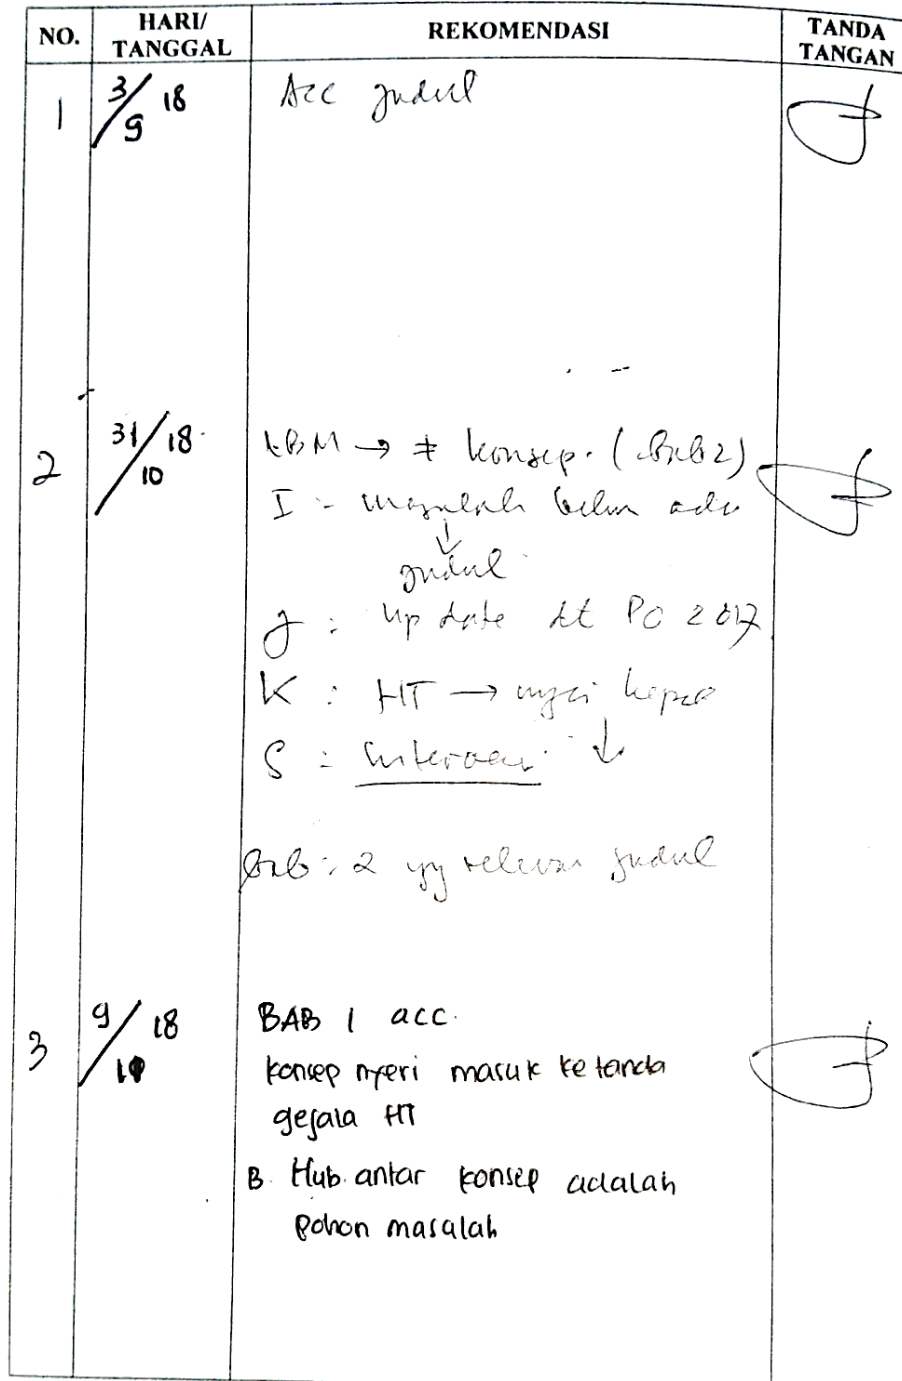 NO. HARI/ TANGGAL REKOMENDASI TANDA TANGAN
1 3/9 18 Acc judul
2 31/10 18 LBM → ≠ konsep. (Bab 2)
I : masalah belum ada
↓
judul
J : Up date dt PO 2017
K : HT → nyeri kepala
S : Intervensi ↓
Bab : 2 yg relevan judul
3 9/10 18 BAB 1 acc.
konsep nyeri masuk ke tanda
gejala HT
B. Hub. antar konsep adalah
pohon masalah